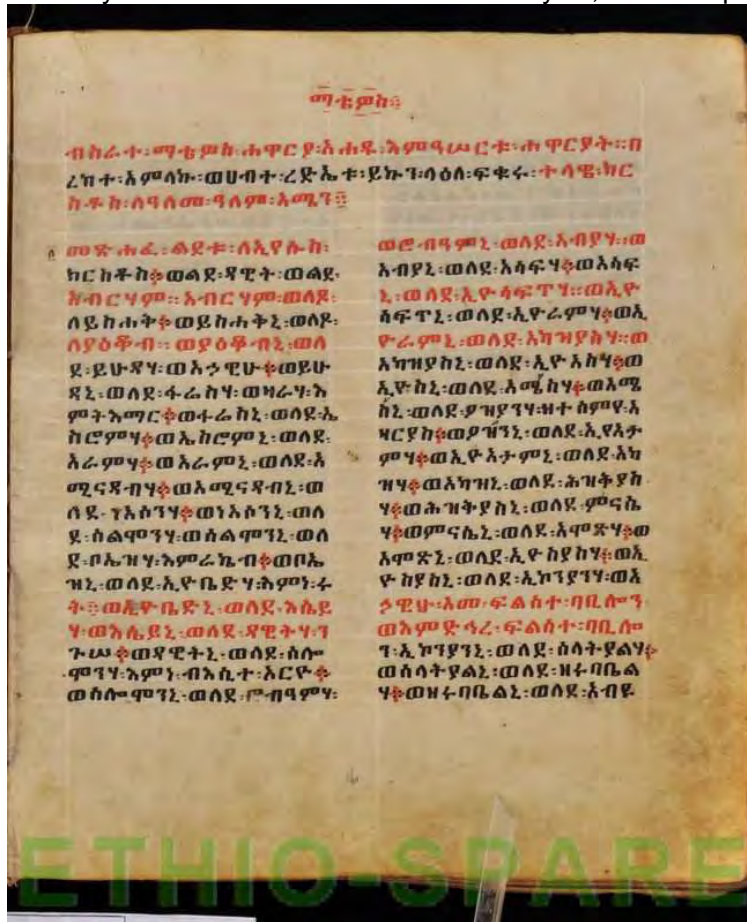 ማቴዎስ።
ብስራተ፡ማቴዎስ፡ሐዋርያ፡አሐዱ፡እምዓሠርቱ፡ሐዋርያት።በ
ረከተ፡አምላኩ፡ወሀብተ፡ረድኤቱ፡ይኩን፡ላዕለ፡ፍቁሩ፡ተላዌ፡ክር
ስቶስ፡ለዓለመ፡ዓለም፡አሜን።
መጽሐፈ፡ልደቱ፡ለኢየሱስ፡
ክርስቶስ።ወልደ፡ዳዊት፡ወልደ፡
አብርሃም።አብርሃም፡ወለዶ፡
ለይስሐቅ።ወይስሐቅኒ፡ወለዶ፡
ለያዕቆብ።ወያዕቆብኒ፡ወለ
ደ፡ይሁዳሃ፡ወአኃዊሁ።ወይሁ
ዳኒ፡ወለደ፡ፋሬስሃ፡ወዛራሃ፡እ
ምትእማር።ወፋሬስኒ፡ወለደ፡ኤ
ስሮምሃ።ወኤስሮምኒ፡ወለደ፡
አራምሃ።ወአራምኒ፡ወለደ፡አ
ሚናዳብሃ።ወአሚናዳብኒ፡ወ
ለደ፡ነአሶንሃ።ወነአሶንኒ፡ወለ
ደ፡ሰልሞንሃ፡ወሰልሞንኒ፡ወለ
ደ፡ቦኤዝሃ፡እምራኬብ።ወቦኤ
ዝኒ፡ወለደ፡ኢዮቤድሃ፡እምነ፡ሩ
ት።ወኢዮቤድኒ፡ወለደ፡እሴይ
ሃ፡ወእሴይኒ፡ወለደ፡ዳዊትሃ፡ን
ጉሠ።ወዳዊትኒ፡ወለደ፡ሰሎ
ሞንሃ፡እምነ፡ብእሲተ፡ኦርዮ።
ወሰሎሞንኒ፡ወለደ፡ሮብዓምሃ፡
ወሮብዓምኒ፡ወለደ፡አብያሃ።ወ
አብያኒ፡ወለደ፡አሳፍሃ።ወአሳፍ
ኒ፡ወለደ፡ኢዮሳፍጥሃ።ወኢዮ
ሳፍጥኒ፡ወለደ፡ኢዮራምሃ።ወኢ
ዮራምኒ፡ወለደ፡አካዝያስሃ።ወ
አካዝያስኒ፡ወለደ፡ኢዮአስሃ።ወ
ኢዮስኒ፡ወለደ፡አሜስሃ።ወአሜ
ስኒ፡ወለደ፡ዖዝያንሃ፡ዘተሰምየ፡አ
ዛርያስ።ወዖዝንኒ፡ወለደ፡ኢየአታ
ምሃ።ወኢዮአታምኒ፡ወለደ፡አካ
ዝሃ።ወአካዝኒ፡ወለደ፡ሕዝቅያስ
ሃ።ወሕዝቅያስኒ፡ወለደ፡ምናሴ
ሃ።ወምናሴኒ፡ወለደ፡አሞጽሃ።ወ
አሞጽኒ፡ወለደ፡ኢዮስያስሃ።ወኢ
ዮስያስኒ፡ወለደ፡ኢኮንያንሃ፡ወአ
ኃዊሁ፡አመ፡ፍልሰተ፡ባቢሎን
ወእምድኅረ፡ፍልሰተ፡ባቢሎ
ን፡ኢኮንያንኒ፡ወለደ፡ሰላትያልሃ።
ወሰላትያልኒ፡ወለደ፡ዘሩባቤል
ሃ።ወዘሩባቤልኒ፡ወለደ፡አብዩ
ETHIO-SPARE